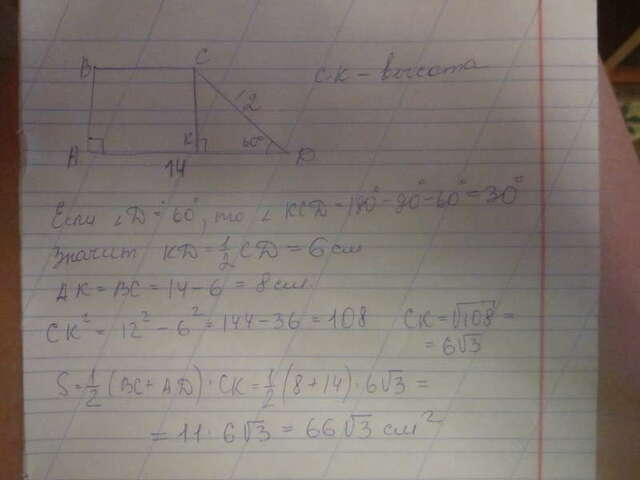 B C
CK – высота
12
K 60°
A D
14
Если ∠D = 60°, то ∠KCD = 180° - 90° - 60° = 30°
Значит KD = 1/2 CD = 6 см
AK = BC = 14 - 6 = 8 см
CK² = 12² - 6² = 144 - 36 = 108 CK = √108 =
= 6√3
S = 1/2 (BC + AD) · CK = 1/2 (8 + 14) · 6√3 =
= 11 · 6√3 = 66√3 см²